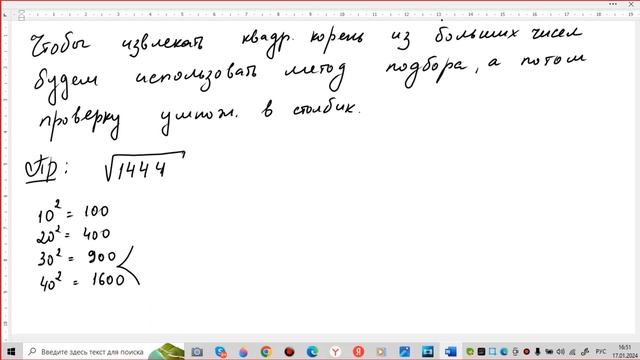 Чтобы извлекать квадр. корень из больших чисел
будем использовать метод подбора, а потом
проверку умнож. в столбик.
Пр: √1444
10² = 100
20² = 400
30² = 900
40² = 1600
Введите здесь текст для поиска
РУС
16:51
17.01.2024